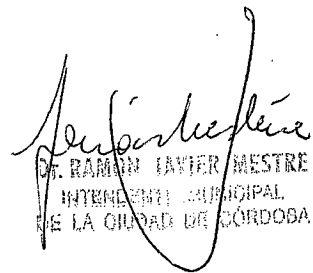 Dr. RAMÓN JAVIER MESTRE
INTENDENTE MUNICIPAL
DE LA CIUDAD DE CÓRDOBA